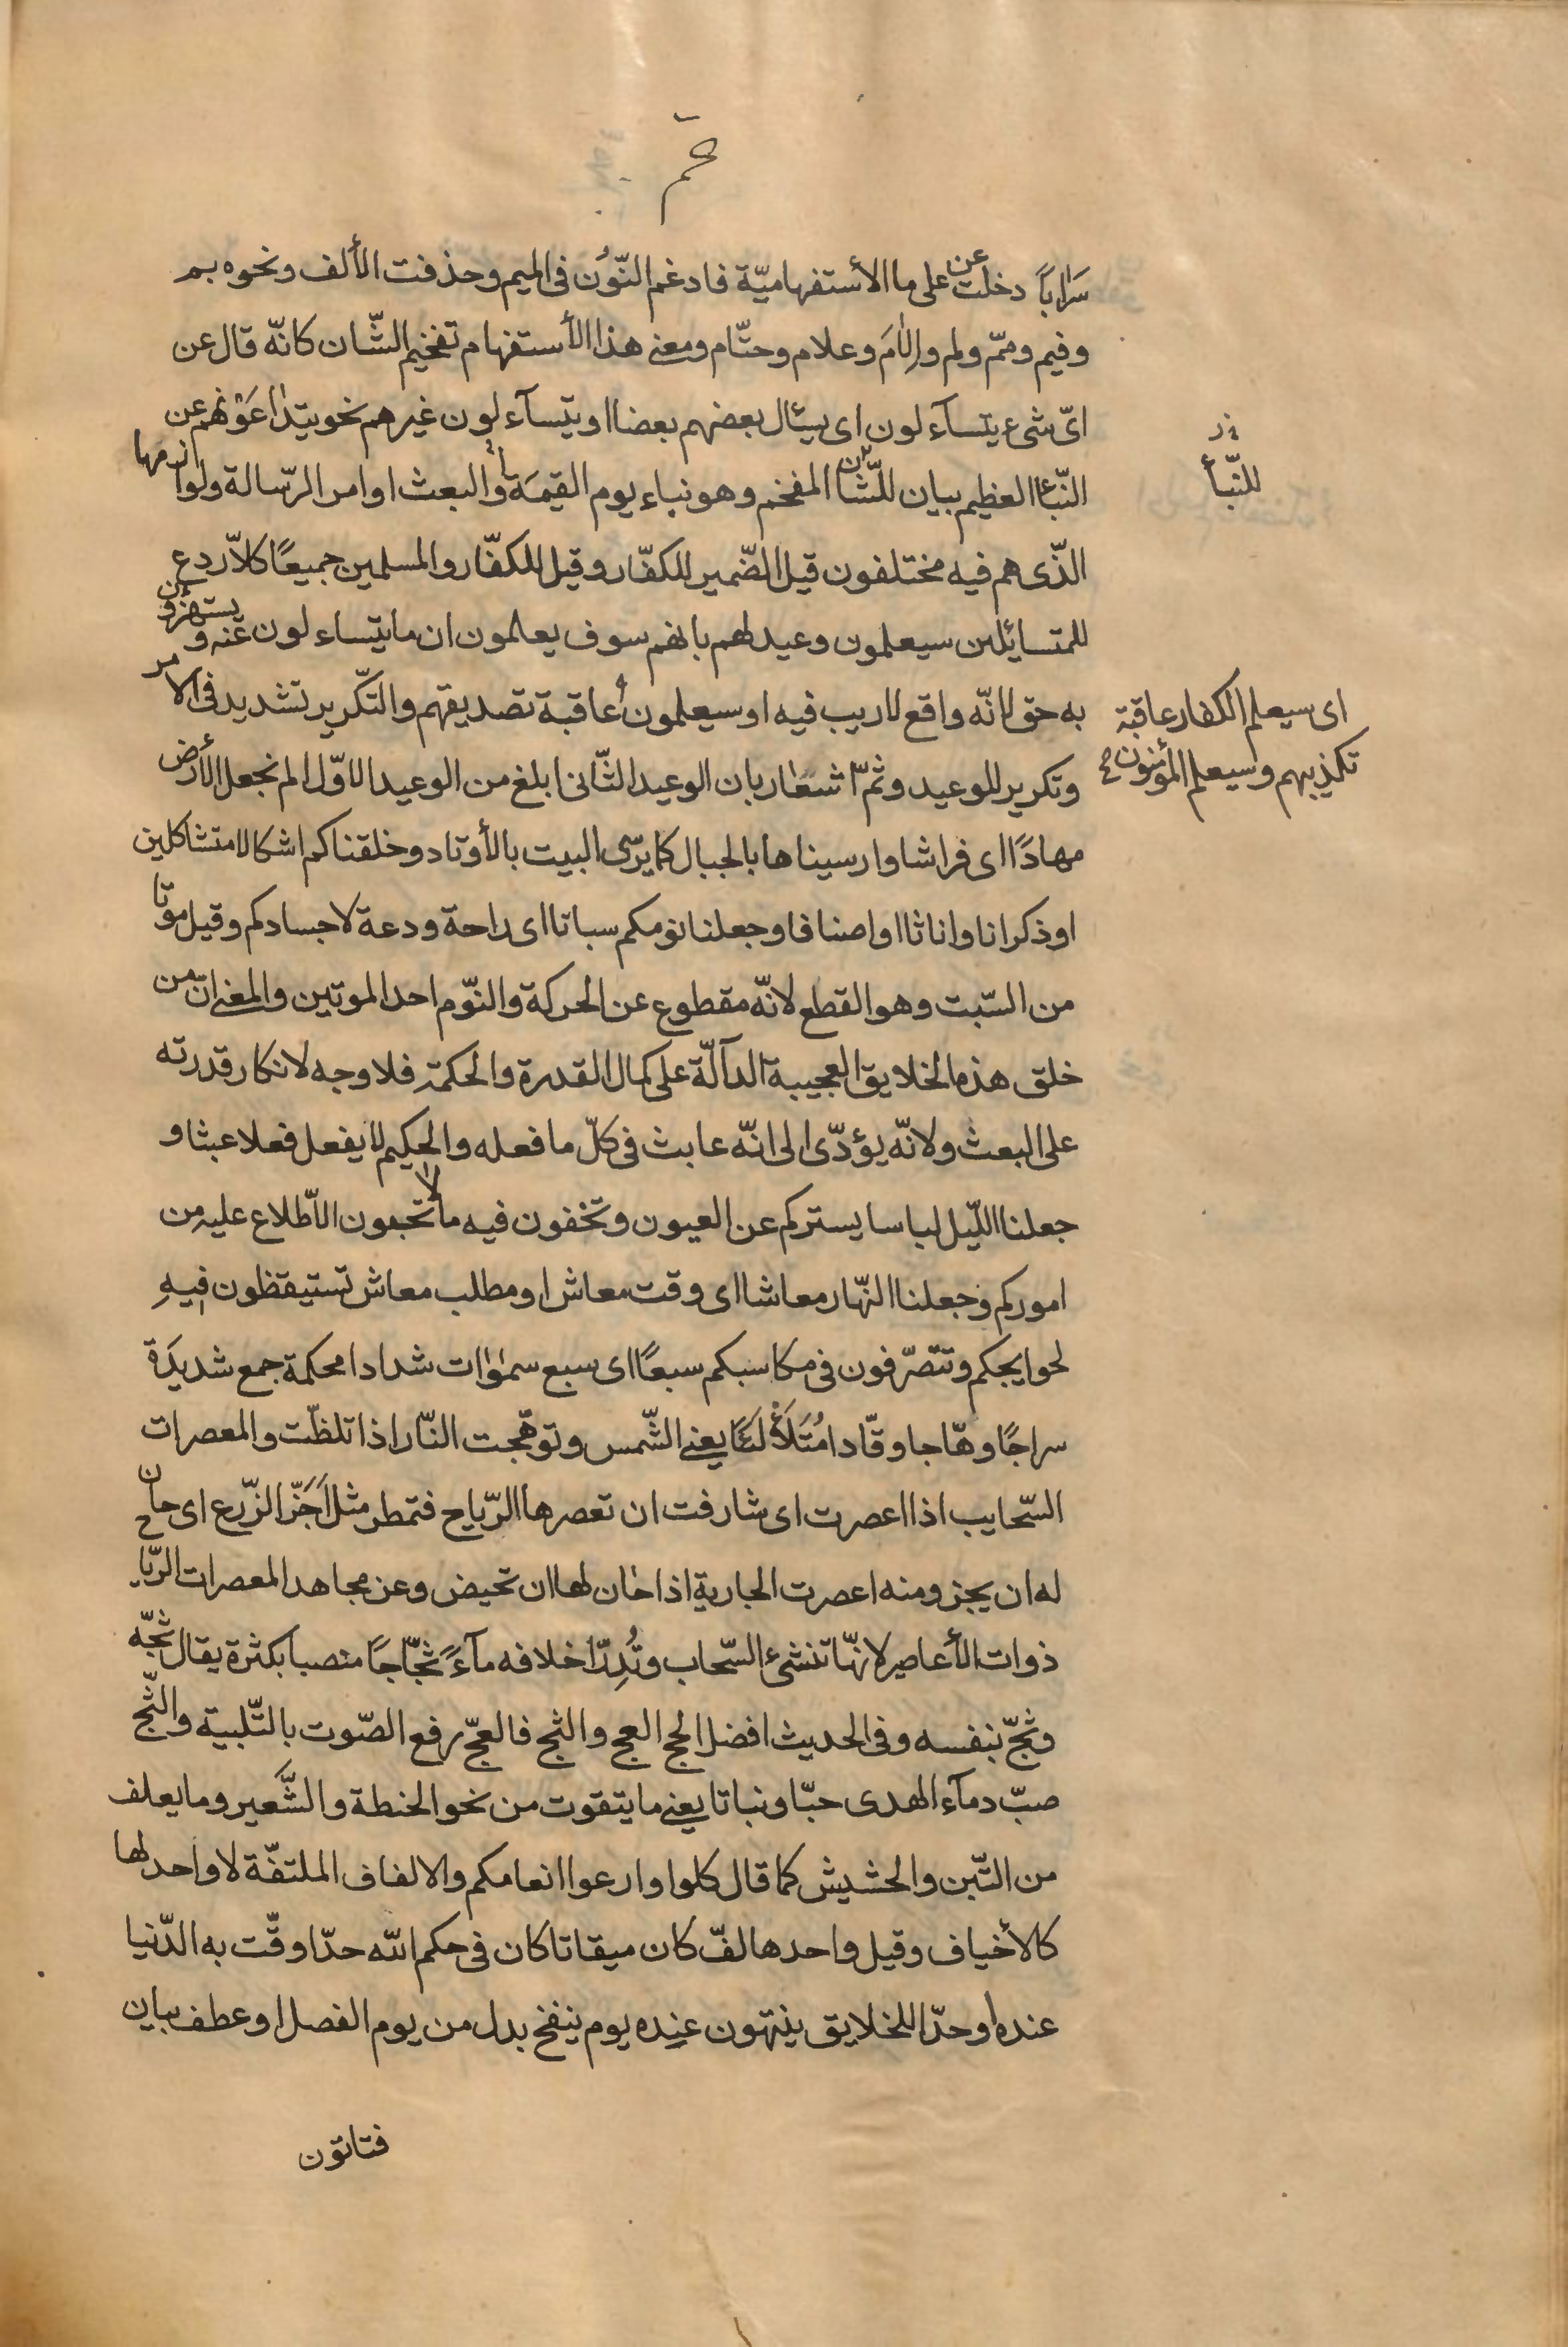 عم
سَرَاباً دخلت عن على ما الأستفهاميّة فادغم النّون فى الميم وحذفت الألف ونحوه بم
وفيم وممّ ولم وإلامَ وعلام وحتّام ومعنى هذا الأستفهام تفخيم الشّان كانّه قال عن
اىّ شىء يتسآءلون اى يسئال بعضهم بعضا او يتسآءلون غيرهم نحو يتداعَوْنهم عن
النّباء العظيم بيان للشّان المفخم وهو نباء يوم القيمَة والبعث او امر الرّسالة ولوازمها
للنّبأ
الذّى هم فيه مختلفون قيل الضّمير للكفّار وقيل للكفّار والمسلمين جميعًا كلاّ ردع
للمتسائلين سيعلمون وعيد لهم بانهم سوف يعلمون ان ما يتساءلون عنه ويستهزؤن
به حق لانّه واقع لاريب فيه او سيعلمون عاقبة تصديقهم والتّكرير تشديد فى الامر
اى سيعلم الكفار عاقبة
تكذيبهم وسيعلم المؤمنون
وتكرير للوعيد وثمّ اشعار بان الوعيد الثّانى ابلغ من الوعيد الاوّل الم نجعل الأرض
مهادًا اى فراشا وارسيناها بالجبال كما يرسّى البيت بالأوتاد وخلقناكم اشكالا متشاكلين
او ذكرانا واناثا او اصنافا وجعلنا نومكم سباتا اى راحة ودعة لاجسادكم وقيل موتا
من السّبت وهو القطع لانّه مقطوع عن الحركة والنّوم احد الموتين والمعنى انّ من
خلق هذه الخلايق العجيبة الدآلّة على كمال القدرة والحكمة فلا وجه لانكار قدرته
على البعث ولانّه يؤدّى الى انّه عابث فى كلّ ما فعله والحكيم لا يفعل فعلا عبثا و
جعلنا اللّيل لباسا يستركم عن العيون وتخفون فيه ما لا تحبون الأطّلاع عليه من
اموركم وجعلنا النّهار معاشا اى وقت معاش او مطلب معاش تستيقظون فيه
لحوايجكم وتتصرّفون فى مكاسبكم سبعًا اى سبع سمٰوات شدادا محكمة جمع شديدَة
سراجًا وهّاجا وقّادا مُتَلَأْلئًا يعنى الشّمس وتوهّجت النّار اذا تلظّت والمعصرات
السّحايب اذا اعصرت اى شارفت ان تعصرها الرّياح فتمطر مثل اَجَزّ الزّرع اى حان
له ان يجز ومنه اعصرت الجارية اذا حان لها ان تحيض وعن مجاهد المعصرات الرّياح
ذوات الأعاصير لانهّا تنشىء السّحاب وتُدِرّ اخلافه مآءً ثجّاجًا منصبا بكثرة يقال ثجّه
وثجّ بنفسه وفى الحديث افضل الحج العج والثج فالعجّ رفع الصّوت بالتّلبية والثّج
صبّ دمآء الهدى حبّا ونباتا يعنى ما يتقوت من نحو الحنطة والشّعير وما يعلف
من التّبن والحشيش كما قال كلوا وارعوا انعامكم والالفاف الملتفّة لا واحد لها
كالأخياف وقيل واحدها لفّ كان ميقاتا كان فى حكم الله حدّا وقّت به الدّنيا
عنده او حدّا للخلايق ينتهون عنده يوم ينفخ بدل من يوم الفصل او عطف بيان
فتاتون